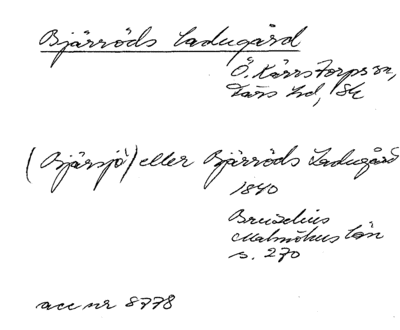 Bjärröds Ladugård
Ö. Kärrstorps sn,
Färs hd, Sk
(Bjärsjö) eller Bjärröds Ladugård
1840
Bruzelius
Malmöhus län
s. 270
acc nr 8778